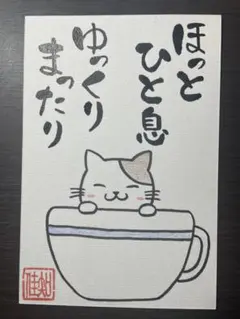 ほっと
ひと息
ゆっくり
まったり